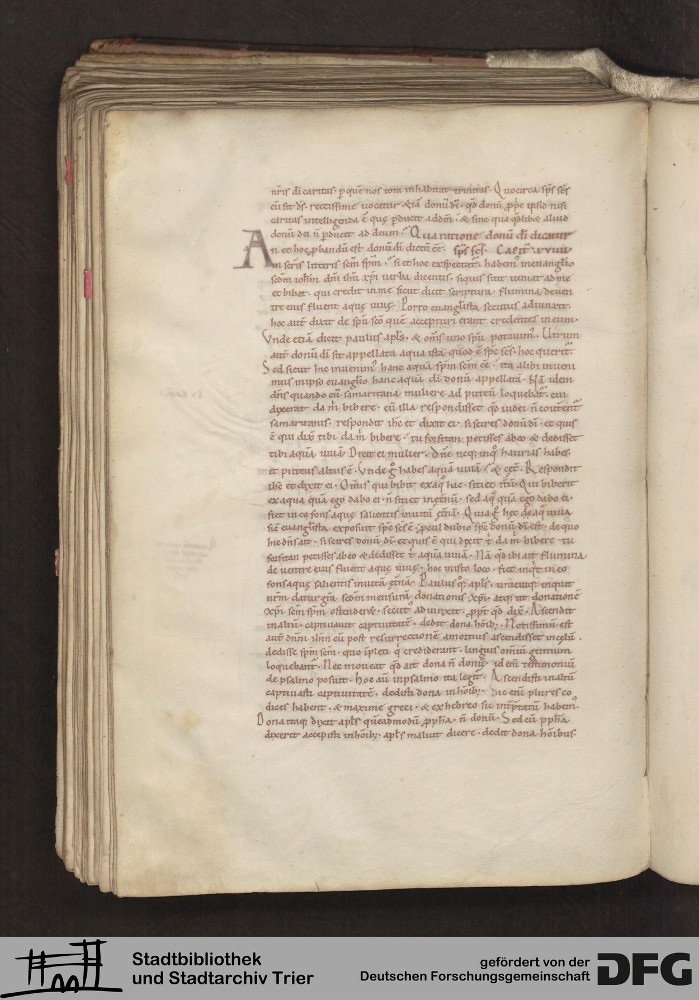 nr̄is dī caritas · ꝑ quē nos tota inhabitat trinitas · Quocirca sp̄s sc̄s
cū sit d̄s · rectissime vocatur &iā donū dī · qd̄ donū ꝓprie
caritas intelligenda ē quę ꝑducit ad dm̄ · & sine qua aliud
donū dei n̄ ꝑducit ad deum · Qua ratione donū dī dicatur
An et hoc ꝓbandū est donū dī dictū ēē · sp̄s sc̄s ·
in sc̄ris litteris sc̄m sp̄m · si et hoc exspectatis habem' in euanglio
scdm iohm̄ dn̄i ihū xp̄i verba dicentis · siquis sitit veniat ad me
et bibat · qui credit in me sicut dicit scriptura flumina de ven
tre eius fluent aquę vivę · Porro euanglista secutus adiunxit ·
hoc aut̄ dixit de sp̄u sc̄o quē accepturi erant credentes in eum ·
Vnde etiā dicit paulus apl̄s · & om̄s uno sp̄u potavim' · Utrum
aut̄ donū dī sit appellata aqua ista quod ē sp̄s sc̄s · hoc querit' ·
Sed sicut hic invenim' hanc aquā sp̄m sc̄m ēē · ita alibi inveni
mus in ipso euanglio hanc aquā dī donū appellatā · Nā idem
dn̄s quando cū samaritana muliere ad puteū loquebat' · cui
dixerat da m̄ bibere · cū illa respondisset qd̄ iudei n̄
samaritanis · respondit ihc̄ et dixit ei · si scires donū dī · et quis
ē qui dix̄ tibi da m̄ bibere · tu forsitan petisses ab eo & dedisset
tibi aquā vivā · Dicit ei mulier · dn̄e neq; inq̊ haurias habes ·
et puteus altus ē · Vnde g̊ habes aquā vivā · & cet̄ · Respondit
ihc̄ et dixit ei · Om̄is qui bibit ex aq̄ hac · sitiet it̄ū · Qui biberit
ex aqua quā ego dabo ei · n̄ sitiet in et̄nū · sed aq̄ quā ego dabo ei ·
fiet in eo fons aquę salientis in vitā et̄nā · Quia g̊ hoc de aq̄ viva
sic̄ euanglista exposuit sp̄s sc̄s ē · ꝓcul dubio sp̄s donū dī est · de quo
hic dn̄s ait · si scires donū dī · et quis ē qui dicit t̄ da m̄ bibere · tu
forsitan petisses ab eo & dedisset t̄ aquā vivā · Nā qd̄ ibi ait flumina
de ventre eius fluent aquę vivę · hoc in isto loco · fiet inq̊t in eo
fons aquę salientis in vitā et̄nā · Paulus q; apl̄s · unicuiq; inquit
nr̄m datur grā · scdm mensurā donationis xp̄i · atq; ut donationē
xp̄i sc̄m sp̄m ostenderet · secut' adiunxit · ꝓpt̄ qd̄ dix̄ · Ascendit
in altū · captivavit captivitatē · dedit dona hōib; · Notissimū est
aut̄ dnm̄ ihm̄ cū post resurrectionē a mortuis ascendisset in celū ·
dedisse sp̄m sc̄m · quo īpleti q̄ crediderant · linguis om̄iū gentium
loquebant' · Nec moveat qd̄ ait dona n̄ donū · id enī testimoniū
de psalmo posuit · Hoc aū in psalmo ita legit' · Ascendisti in altū
captivasti captivitatē · dedisti dona in hōib; · Sic enī plures co
dices habent · & maxime greci · & ex hebreo sic int̄pretatū habem' ·
Dona itaq; dixit apl̄s quēadmodū ꝓph̄a · n̄ donū · Sed cū ꝓph̄a
dixerit accepisti in hōib; · apl̄s maluit dicere · dedit dona hōibus ·
Stadtbibliothek
und Stadtarchiv Trier
gefördert von der
Deutschen Forschungsgemeinschaft
DFG